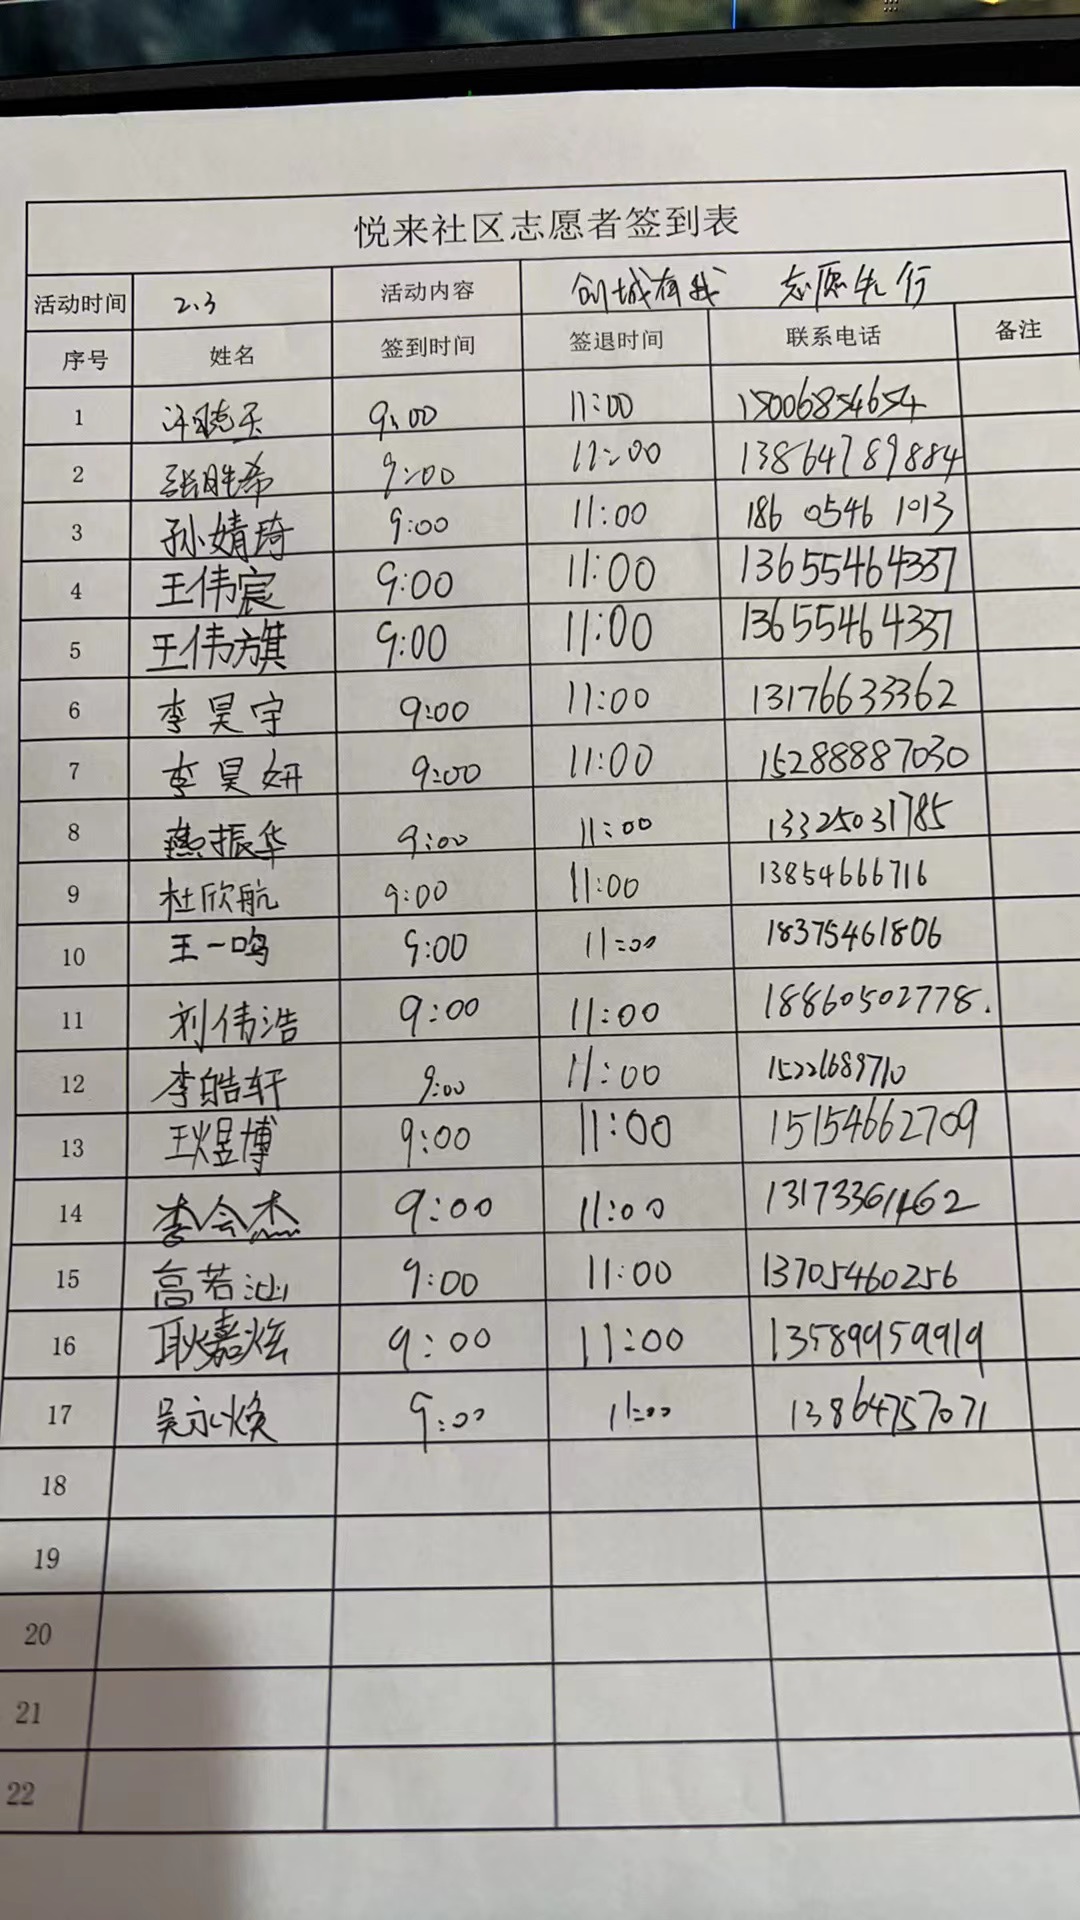 悦来社区志愿者签到表
活动时间 2.3 活动内容 创城有我 志愿先行
序号 姓名 签到时间 签退时间 联系电话 备注
1 9:00 11:00 15006854654
2 张胜希 9:00 11:00 13864789884
3 孙婧琦 9:00 11:00 186 0546 1013
4 王伟宸 9:00 11:00 13655464337
5 王伟旗 9:00 11:00 13655464337
6 李昊宇 9:00 11:00 13176633362
7 李昊妍 9:00 11:00 15288887030
8 燕振华 9:00 11:00 13325031785
9 杜欣航 9:00 11:00 13854666716
10 王一鸣 9:00 11:00 18375461806
11 刘伟浩 9:00 11:00 18860502778.
12 李皓轩 9:00 11:00 15221689710
13 王煜博 9:00 11:00 15154662709
14 李会杰 9:00 11:00 13173361462
15 高若汕 9:00 11:00 13705460256
16 耿嘉炫 9:00 11:00 13589959919
17 吴永焕 9:00 11:00 13864757071
18
19
20
21
22